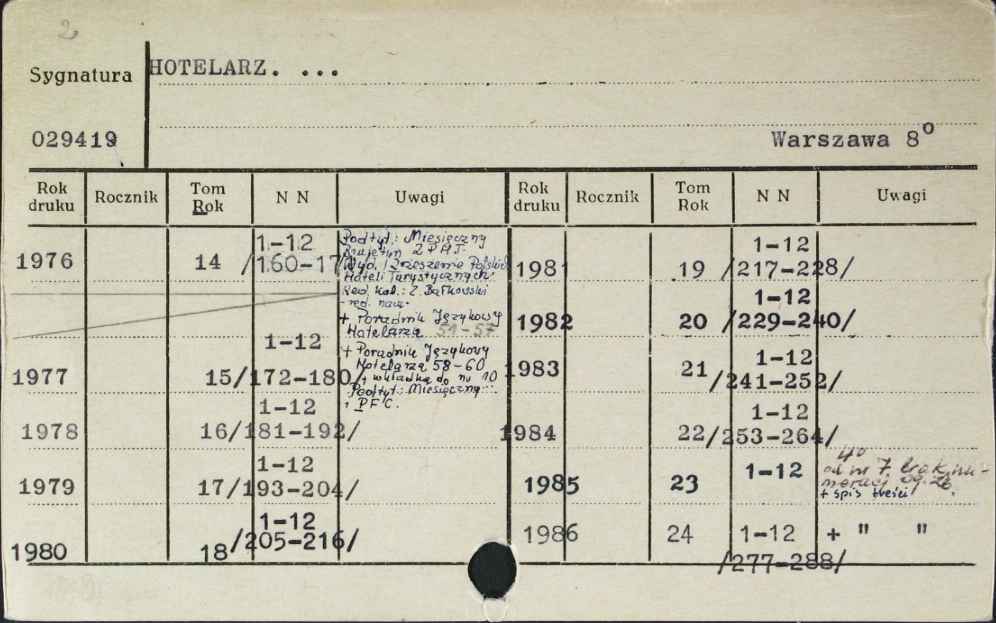 2
Sygnatura HOTELARZ. ...
029419
Warszawa 8°
Rok druku Rocznik Tom Rok N N Uwagi
1976 14 1-12 /160-17
Podtyt.: Miesięczny
Z P H T.
Wyd. Zrzeszenie Polskich
Hoteli Turystycznych.
Red. kol.: Z. Bątkowski
- red. nacz.
+ Poradnik Językowy
Hotelarza 51-57
1977 15 1-12 /172-180/
+ Poradnik Językowy
Hotelarza 58-60
+ wkładka do nr 10
Podtyt.: Miesięczny
+ PFC.
1978 16 1-12 /181-192/
1979 17 1-12 /193-204/
1980 18 1-12 /205-216/
Rok druku Rocznik Tom Rok N N Uwagi
1981 19 1-12 /217-228/
1982 20 1-12 /229-240/
1983 21 1-12 /241-252/
1984 22 1-12 /253-264/
1985 23 1-12
4°
od nr 7. brak nu-
meracji og. zb.
+ spis treści
1986 24 1-12 + " "
/277-288/